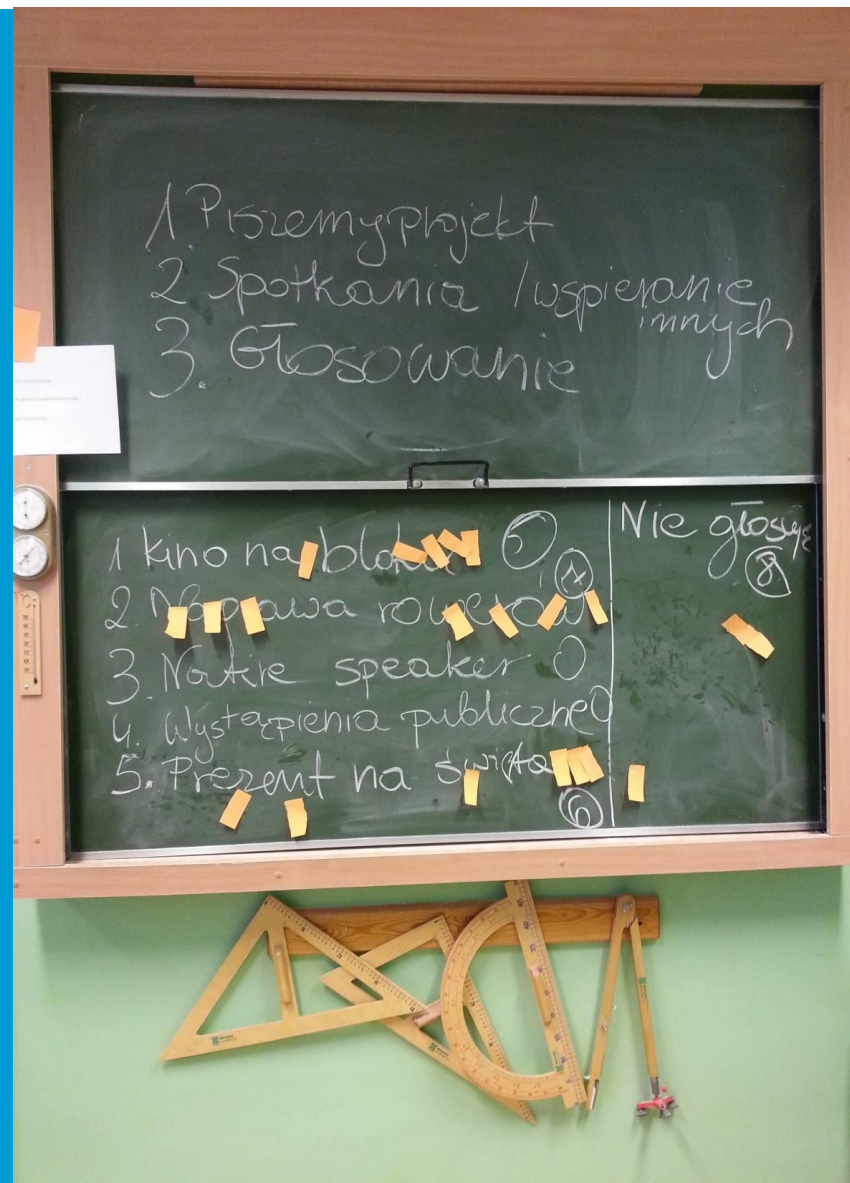 1 Piszemy projekt
2 Spotkania / wspieranie
innych
3. Głosowanie
1 kino na bloku 5
2. Naprawa rowerów 7
3. Native speaker 0
4. Wystąpienia publiczne 0
5. Prezent na święta
6
Nie głosuję
8